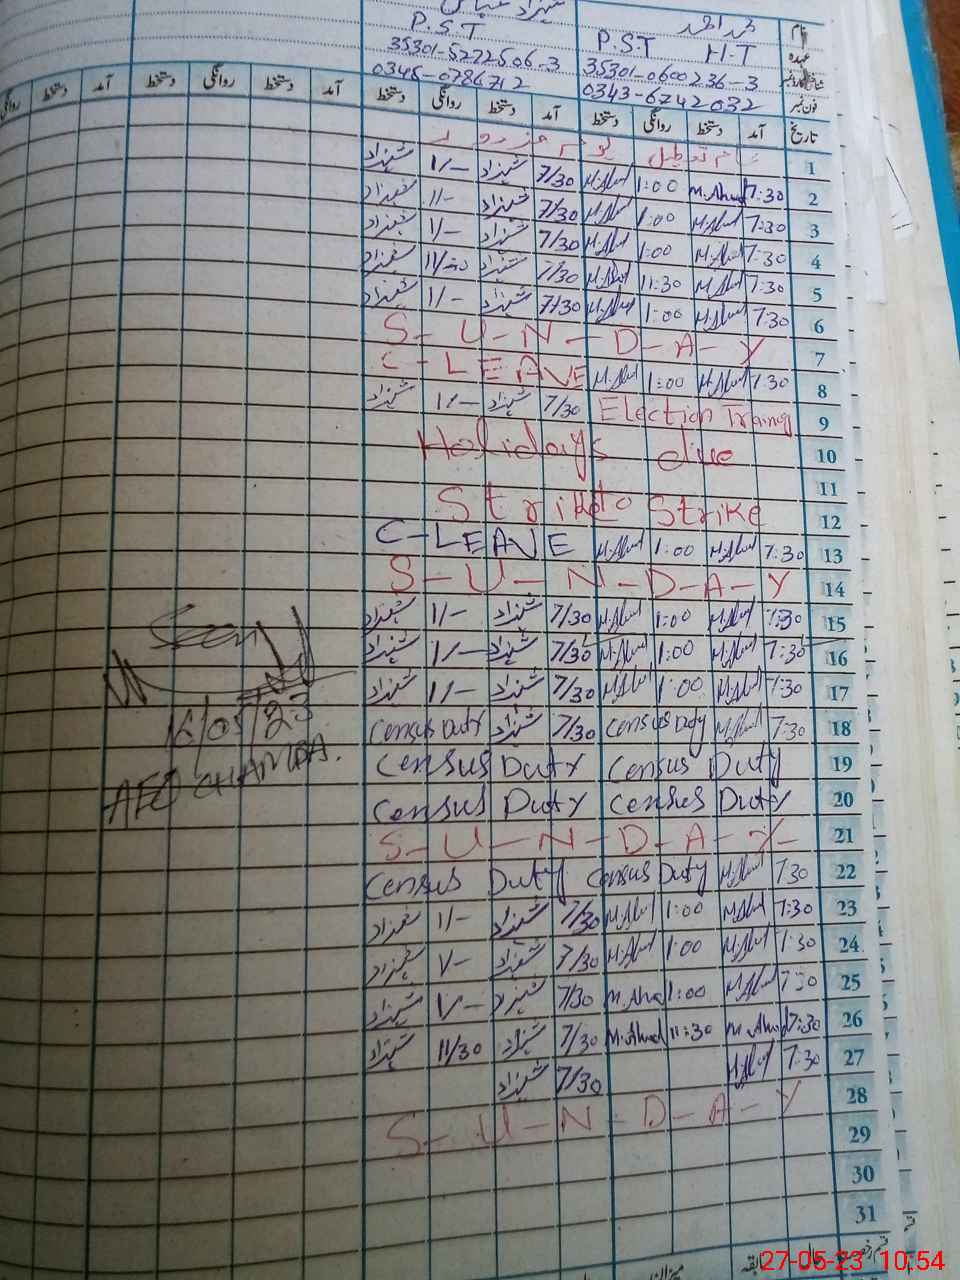 نام
شہزاد عباس
عہدہ
P.S.T H-T
P.S.T
شناختی کارڈ نمبر 35301-0600236-3
35301-5272506-3
فون نمبر 0343-6742032
0345-0786712
تاریخ آمد دستخط روانگی دستخط آمد دستخط روانگی دستخط آمد دستخط روانگی دستخط آمد دستخط روانگی
1 عام تعطیل یوم مزدور
2 7:30 M.Ahmad 1:00 M.Ahmad 7/30 شہزاد 1/- شہزاد
3 7:30 M.Ahmad 1:00 M.Ahmad 7/30 شہزاد 1/- شہزاد
4 7:30 M.Ahmad 1:00 M.Ahmad 7/30 شہزاد 1/- شہزاد
5 7:30 M.Ahmad 11:30 M.Ahmad 7/30 شہزاد 11/30 شہزاد
6 7:30 M.Ahmad 1:00 M.Ahmad 7/30 شہزاد 1/- شہزاد
7 S-U-N-D-A-Y
8 7:30 M.Ahmad 1:00 M.Ahmad C-LEAVE
9 Election Training 7/30 شہزاد 1/- شہزاد
10 Holidays due
11
12 to Strike Strike
13 7:30 M.Ahmad 1:00 M.Ahmad C-LEAVE
14 S-U-N-D-A-Y
15 7:30 M.Ahmad 1:00 M.Ahmad 7/30 شہزاد 1/- شہزاد
16 7:30 M.Ahmad 1:00 M.Ahmad 7/30 شہزاد 1/- شہزاد
17 7:30 M.Ahmad 1:00 M.Ahmad 7/30 شہزاد 1/- شہزاد
18 7:30 M.Ahmad Census Duty 7/30 شہزاد Census Duty
19 Census Duty Census Duty
20 Census Duty Census Duty
21 S-U-N-D-A-Y-
22 7:30 M.Ahmad Census Duty Census Duty
23 7:30 M.Ahmad 1:00 M.Ahmad 7/30 شہزاد 1/- شہزاد
24 7:30 M.Ahmad 1:00 M.Ahmad 7/30 شہزاد 1/- شہزاد
25 7:30 M.Ahmad 1:00 M.Ahmad 7/30 شہزاد 1/- شہزاد
26 7:30 M.Ahmad 11:30 M.Ahmad 7/30 شہزاد 11/30 شہزاد
27 7:30 M.Ahmad 7/30 شہزاد
28 S-U-N-D-A-Y
29
30
31
Seen
16/05/23
AEO CHAMBA.
27-05-23 10:54